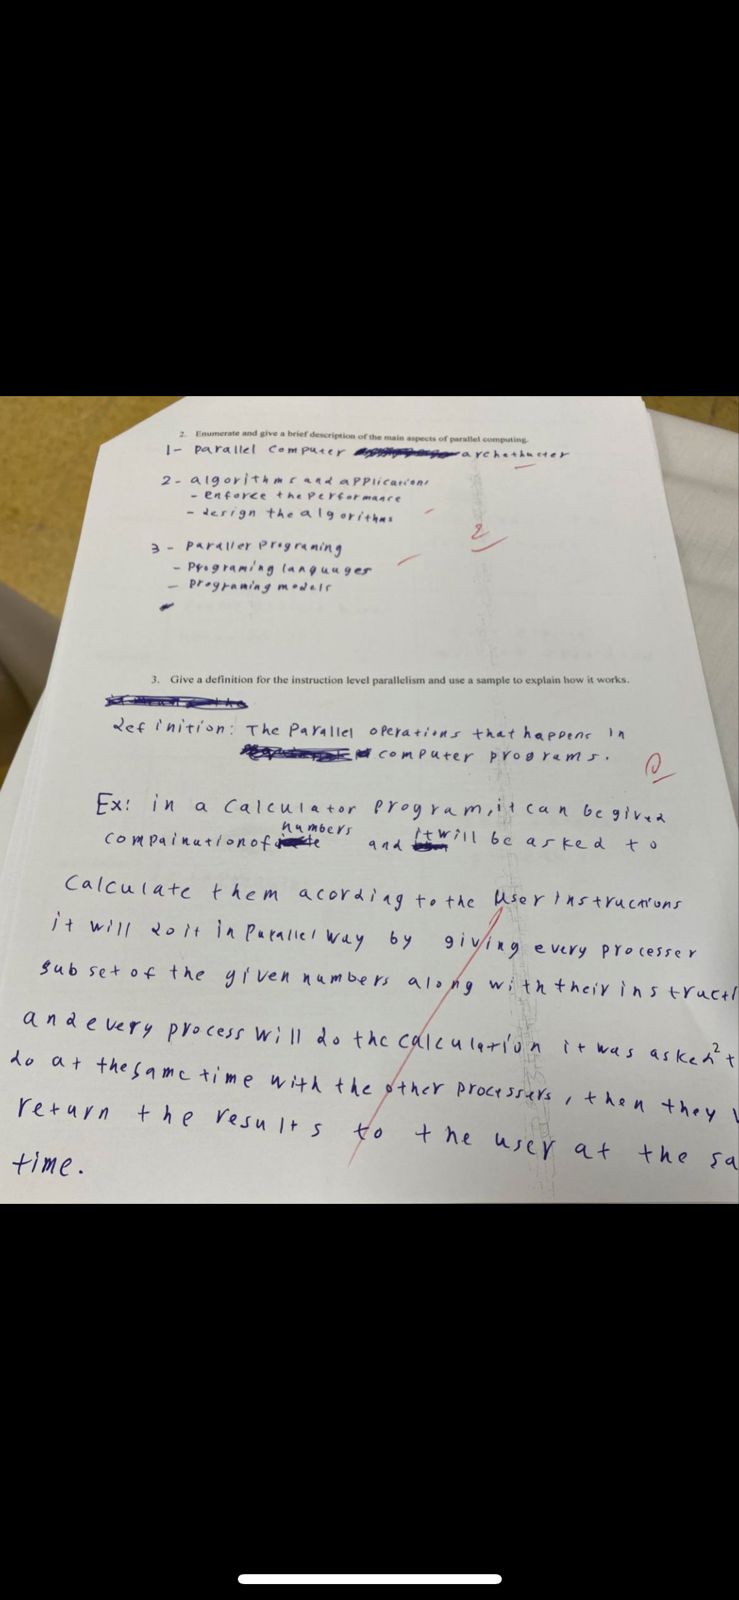 2. Enumerate and give a brief description of the main aspects of parallel computing.
1- parallel computer archethucter
2- algorithms and applications
- enforce the performance
- design the algorithms
2
3- paraller programing
- programing languages
- programing models
3. Give a definition for the instruction level parallelism and use a sample to explain how it works.
definition: The parallel operations that happens in
computer programs.
0
Ex: in a calculator program, it can be gived
numbers
compaination of and it will be asked to
calculate them acording to the user instructions
it will do it in parallel way by giving every processer
subset of the given numbers along with their instructi
and every process will do the calculation it was asked t
do at the same time with the other processers, then they
return the results to the user at the sa
time.